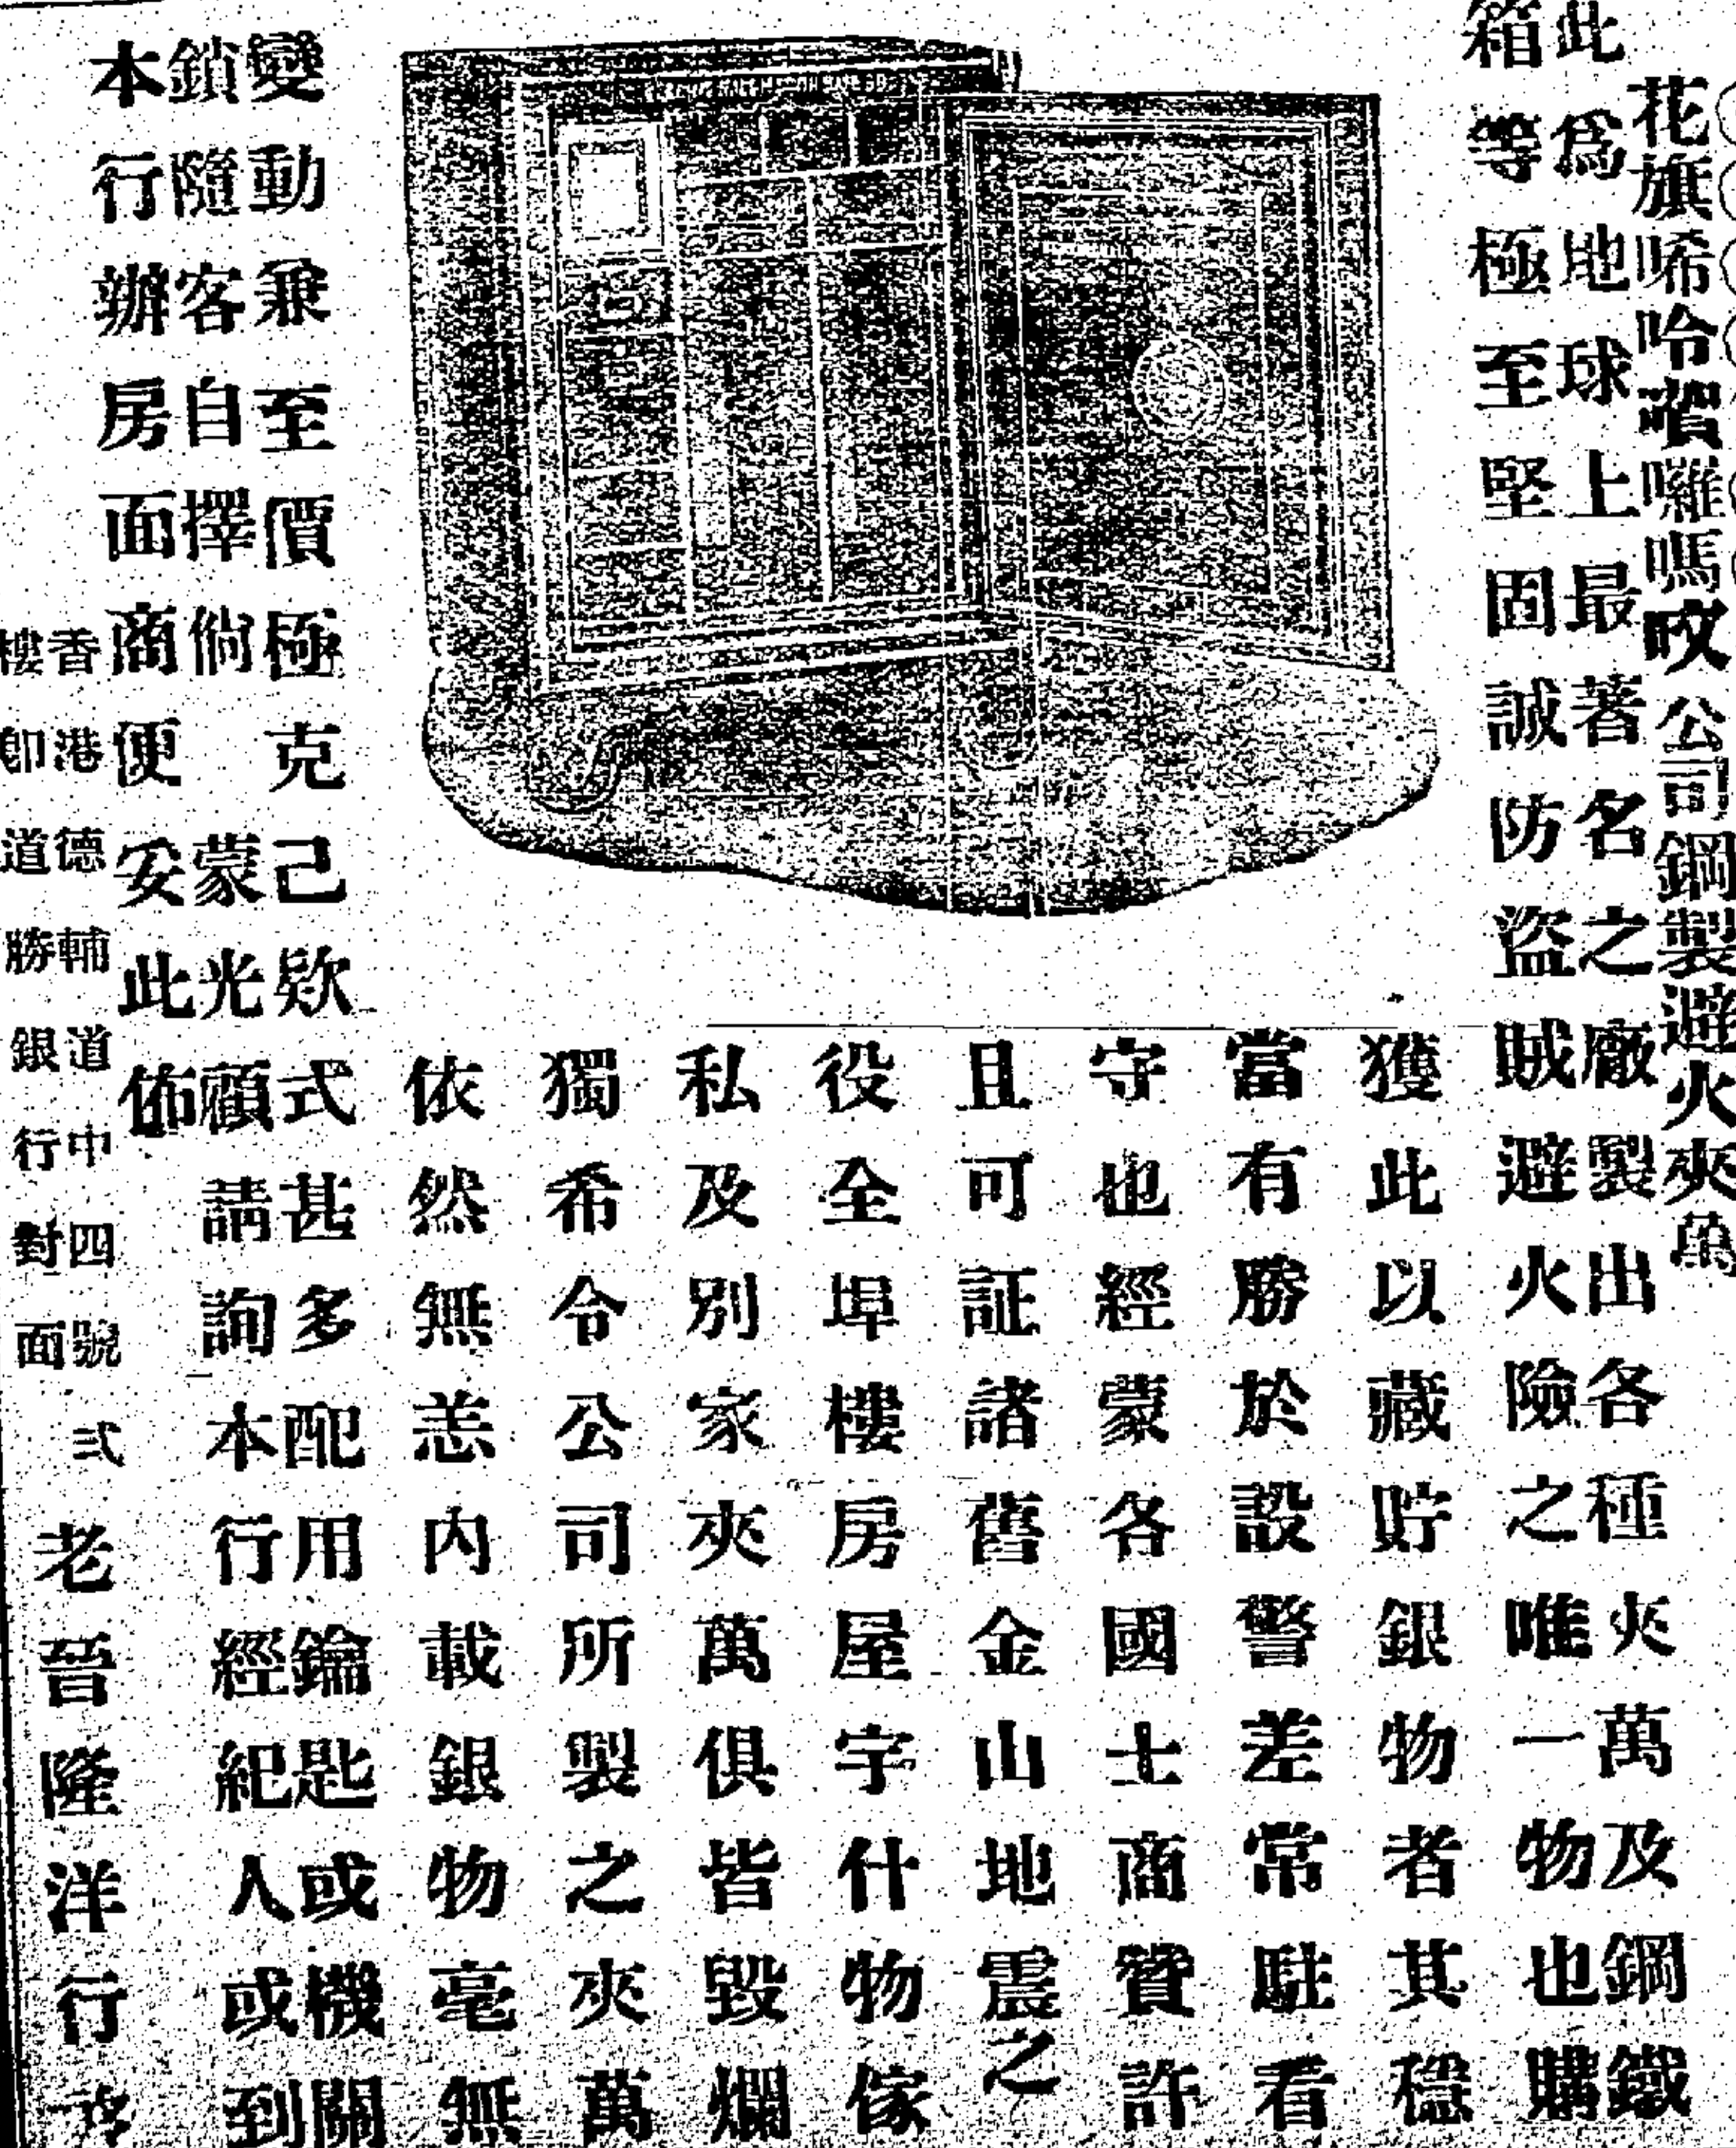 花旗唏呤嗬囇嗎㕮公司鋼製避火夾萬
此為地球上最著名之廠製出各種夾萬及鋼鐵
箱等極至堅固誠防盜賊避火險之唯一物也購
獲此以藏貯銀物者其穩
當有勝於設警差常駐看
守也經蒙各國士商贊許
且可証諸舊金山地震之
役全埠樓房屋宇什物傢
私及別家夾萬俱皆毀爛
獨希令公司所製之夾萬
依然無恙內載銀物毫無
變動兼至價極克己欵式甚多配用鑰匙或機關
鎖隨客自擇倘蒙光顧請詢本行經紀人或到
本行辦房面商便妥此佈
香港德輔道中四號弍
樓即道勝銀行對面
老晉隆洋行